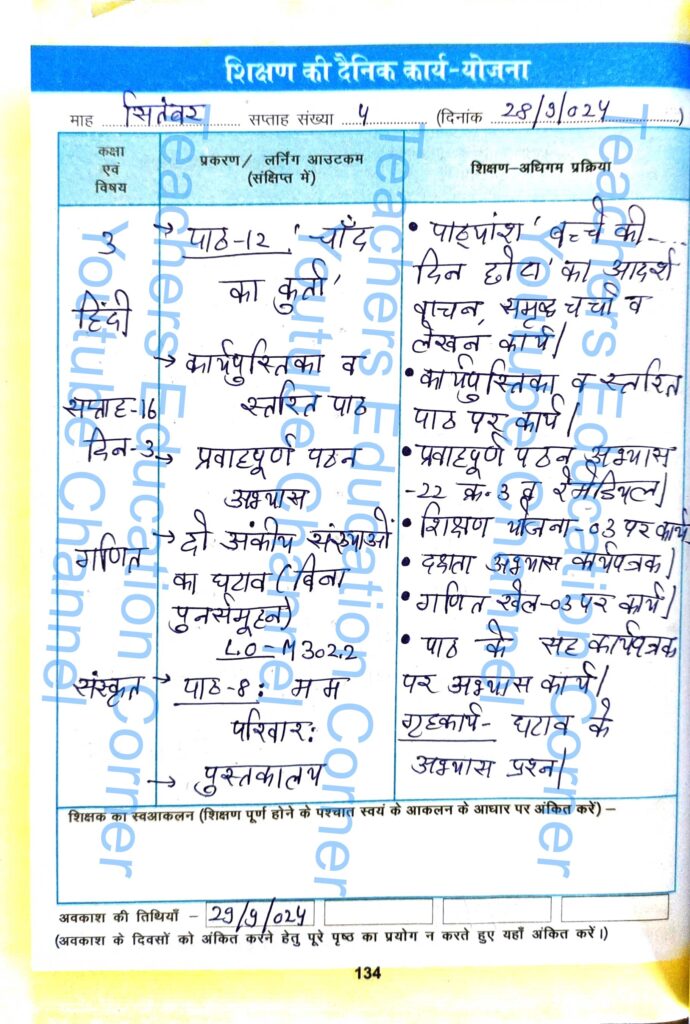 शिक्षण की दैनिक कार्य-योजना
माह सितंबर सप्ताह संख्या 4 (दिनांक 28/9/024)
कक्षा एवं विषय
प्रकरण/ लर्निंग आउटकम (संक्षिप्त में)
शिक्षण-अधिगम प्रक्रिया
3
हिंदी
सप्ताह-16
दिन-3
→ पाठ-12 'चाँद
का कुर्ता'
→ कार्यपुस्तिका व
स्तरित पाठ
→ प्रवाहपूर्ण पठन
अभ्यास
• पाठ्यांश 'बच्चे की---
दिन छोटा' का आदर्श
वाचन, समूह चर्चा व
लेखन कार्य।
• कार्यपुस्तिका व स्तरित
पाठ पर कार्य।
• प्रवाहपूर्ण पठन अभ्यास
-22 क्र.3 व रेमेडियल।
गणित
→ दो अंकीय संख्याओं
का घटाव (बिना
पुनर्समूहन)
LO-M302.2
• शिक्षण योजना-03 पर कार्य
• दक्षता अभ्यास कार्यपत्रक।
• गणित खेल-03 पर कार्य।
संस्कृत
→ पाठ-8: मम
परिवार:
→ पुस्तकालय
• पाठ के सह कार्यपत्रक
पर अभ्यास कार्य।
गृहकार्य- घटाव के
अभ्यास प्रश्न।
शिक्षक का स्वआकलन (शिक्षण पूर्ण होने के पश्चात स्वयं के आकलन के आधार पर अंकित करें) –
अवकाश की तिथियाँ – 29/9/024
(अवकाश के दिवसों को अंकित करने हेतु पूरे पृष्ठ का प्रयोग न करते हुए यहाँ अंकित करें।)
134
Teachers Education Corner
Youtube Channel
Teachers Education Corner
Youtube Channel
Teachers Education Corner
Youtube Channel